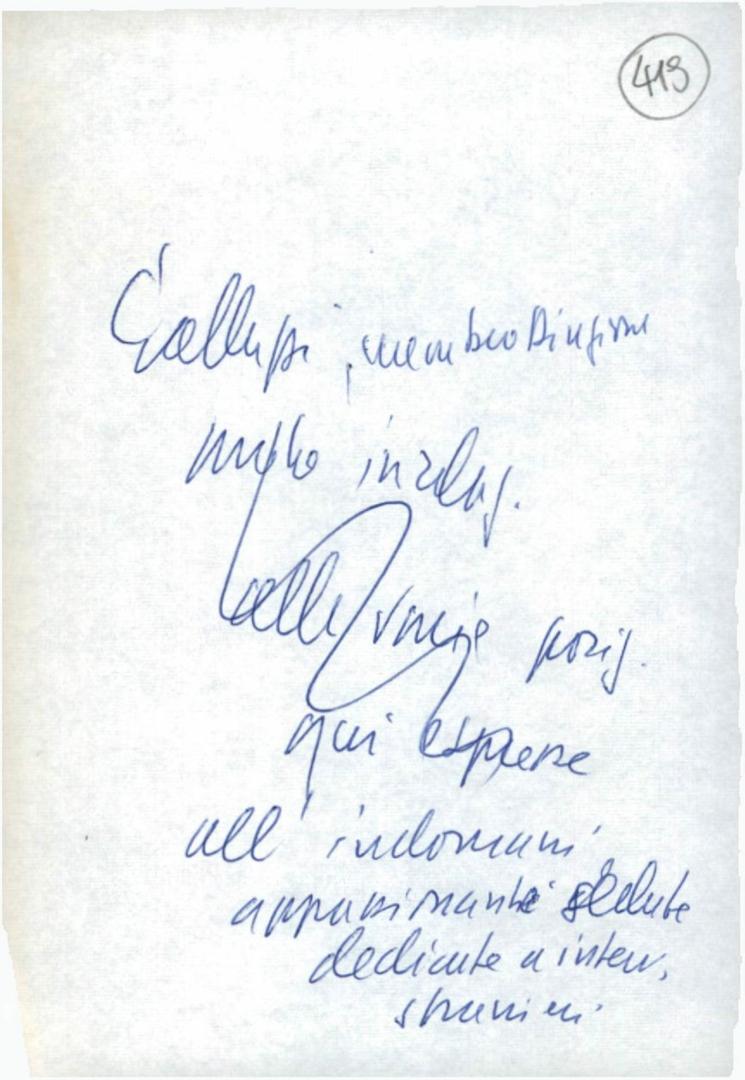 413
Galluppi, membro Direzione
molto in relaz.
alle varie posiz.
qui espresse
all'indomani
appassionante sedute
dedicate a interv.
stranieri.